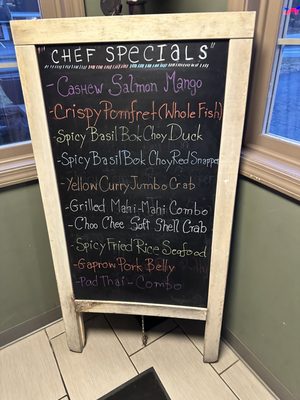 "CHEF SPECIALS"
-Cashew Salmon Mango
-Crispy Pomfret (Whole Fish)
-Spicy Basil Bok Choy Duck
-Spicy Basil Bok Choy Red Snapper
-Yellow Curry Jumbo Crab
-Grilled Mahi-Mahi Combo
-Choo Chee Soft Shell Crab
-Spicy Fried Rice Seafood
-Gaprow Pork Belly
-Pad Thai - Combo